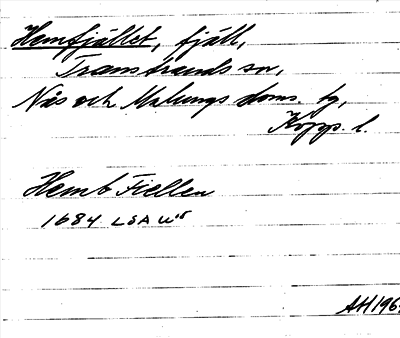 Hemfjället, fjäll,
Transtrands sn,
Nås och Malungs doms. tg,
Kopp. l.
Hemb Fiellen
1684 LSA U15
AH 196